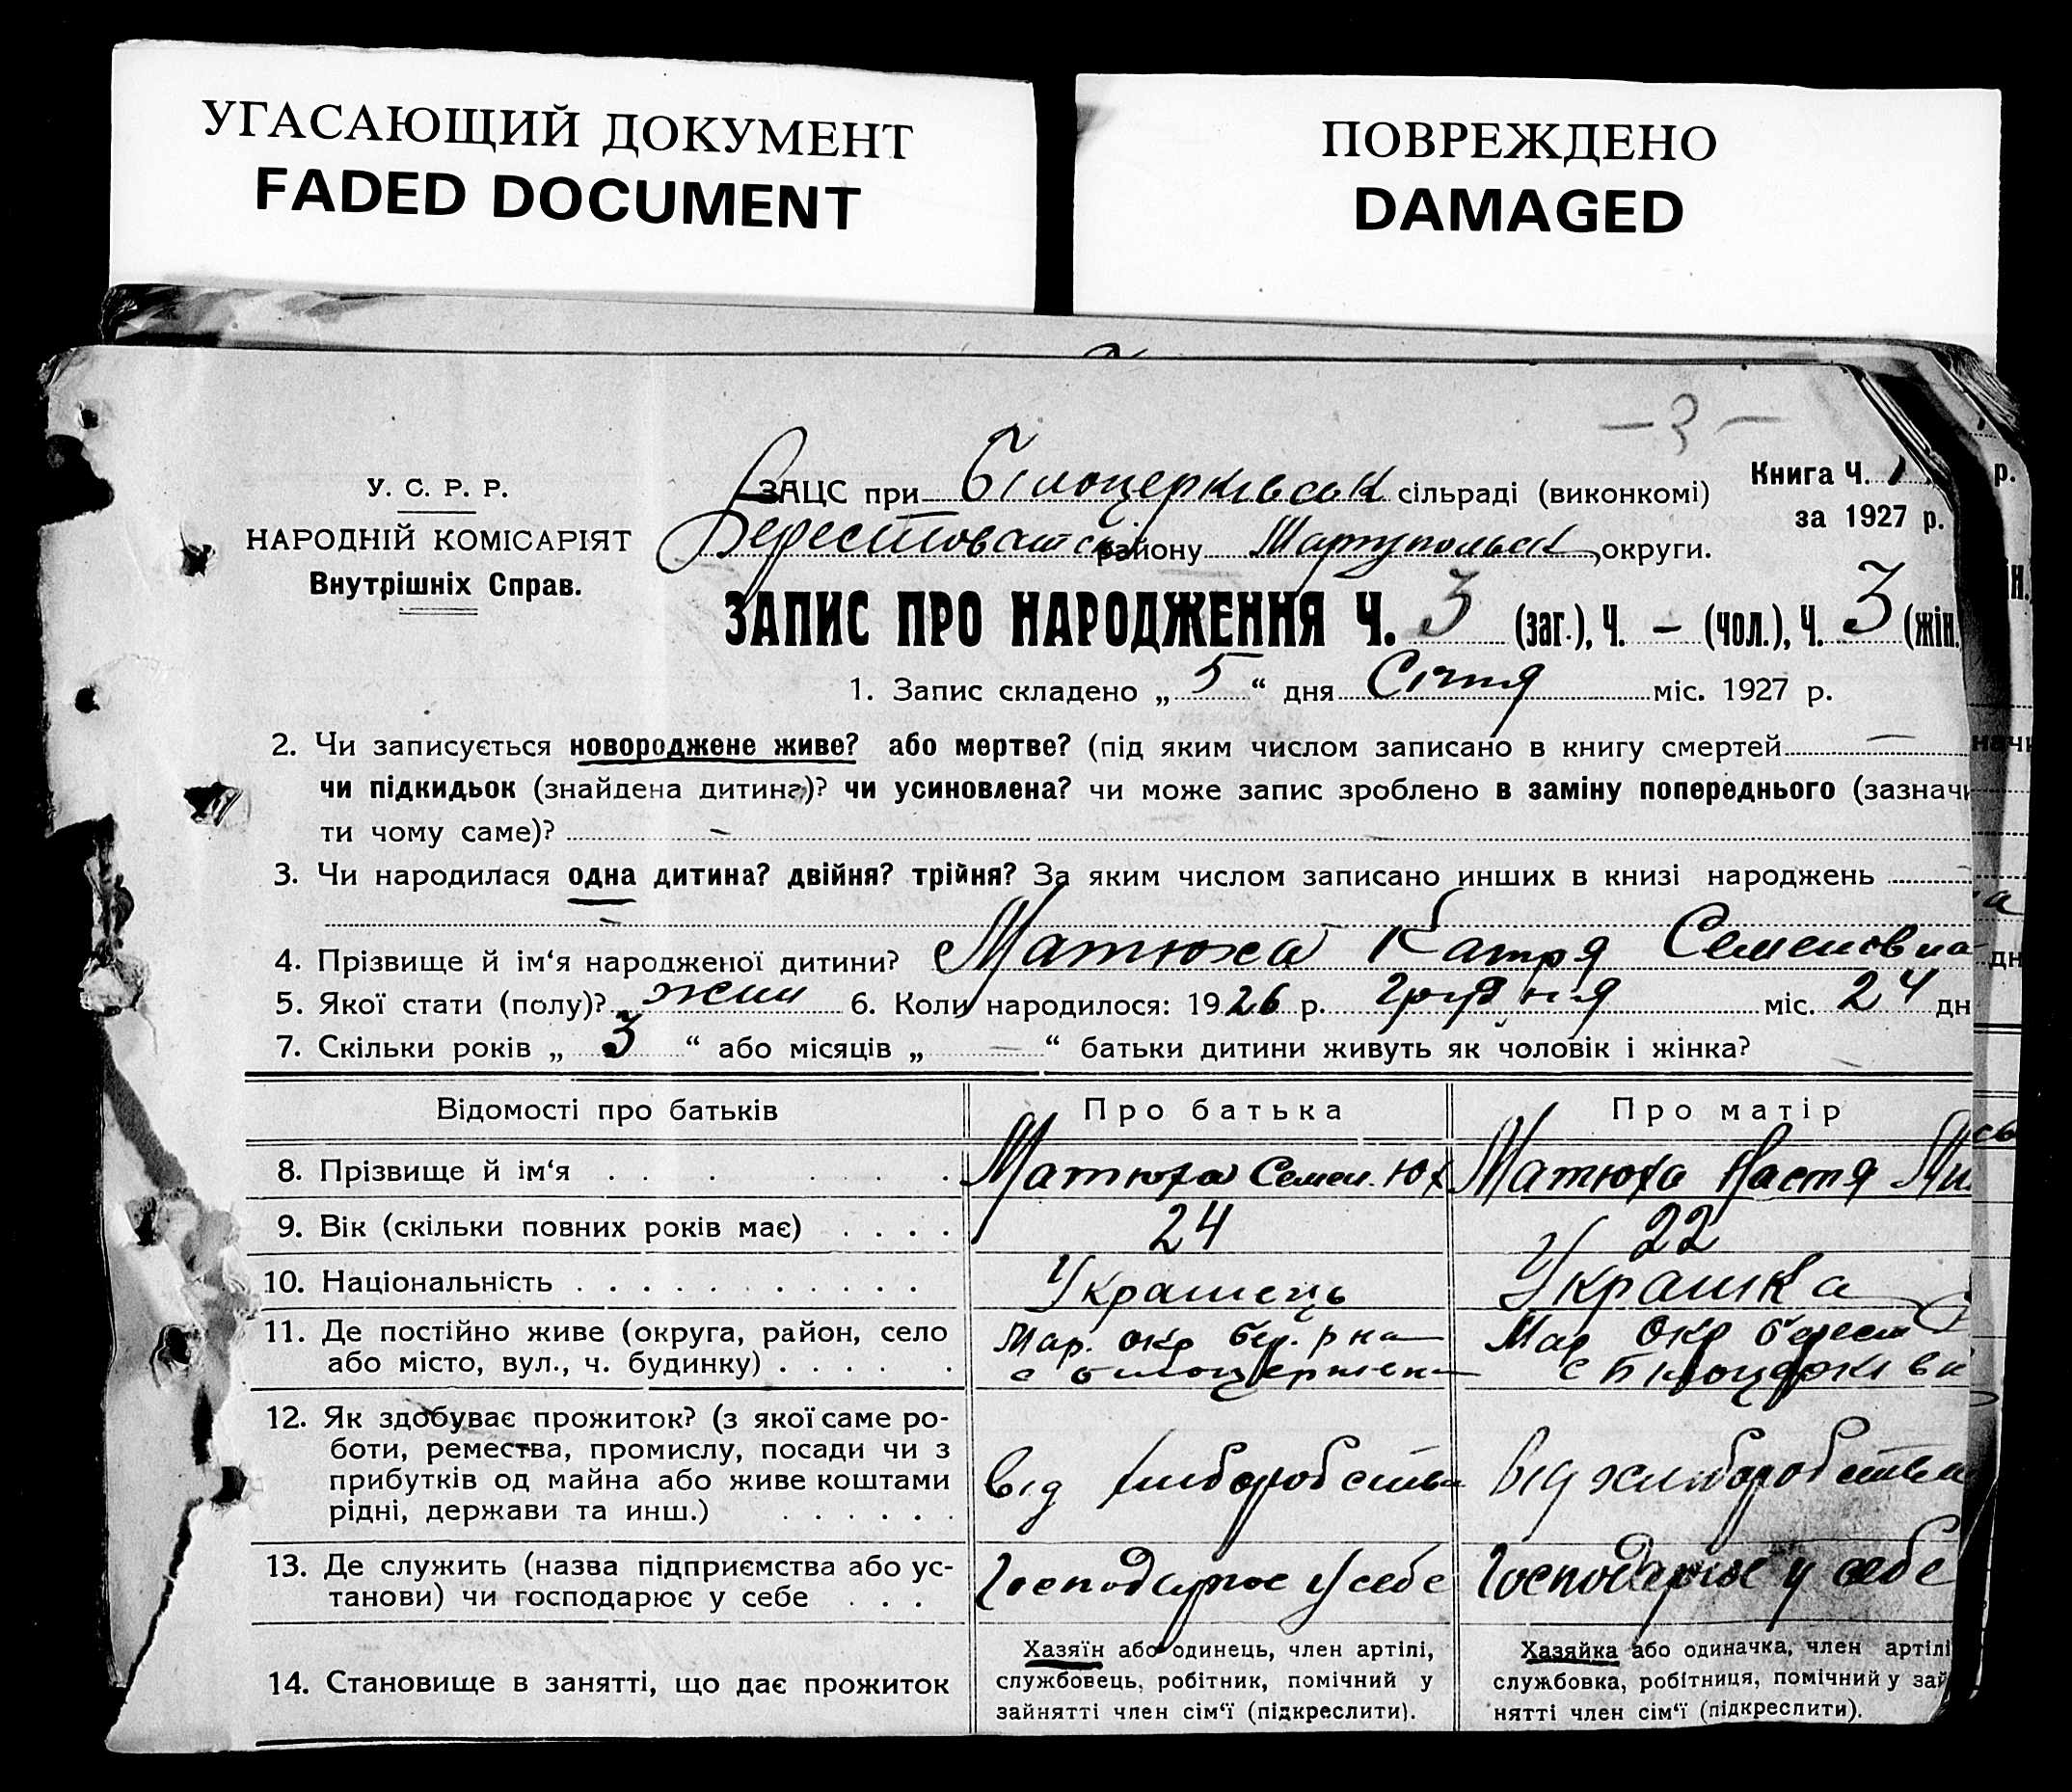 УГАСАЮЩИЙ ДОКУМЕНТ
FADED DOCUMENT
ПОВРЕЖДЕНО
DAMAGED
— 3 —
У. С. Р. Р.
НАРОДНІЙ КОМІСАРІЯТ
Внутрішніх Справ.
ЗАЦС при Білоцерківськ сільраді (виконкомі)
Берестоватськ району Маріупольськ округи.
Книга Ч. 1
за 1927 р.
ЗАПИС ПРО НАРОДЖЕННЯ Ч. 3 (заг.), Ч. – (чол.), Ч. 3 (жін.
1. Запис складено „ 5 “ дня Січня міс. 1927 р.
2. Чи записується новороджене живе? або мертве? (під яким числом записано в книгу смертей —
чи підкидьок (знайдена дитина)? чи усиновлена? чи може запис зроблено в заміну попереднього (зазначи
ти чому саме)? –
3. Чи народилася одна дитина? двійня? трійня? За яким числом записано инших в книзі народжень
–
4. Прізвище й ім‘я народженої дитини? Матюха Катря Семеновна
5. Якої стати (полу)? жин 6. Коли народилося: 1926 р. грудня міс. 24 дн
7. Скільки років „ 3 “ або місяців „ — “ батьки дитини живуть як чоловік і жінка?
Відомості про батьків Про батька Про матір
8. Прізвище й ім‘я Матюха Семен. Юх Матюха Настя Ми
9. Вік (скільки повних років має) 24 22
10. Національність Украинець Украинка
11. Де постійно живе (округа, район, село
або місто, вул., ч. будинку)
Мар. окр бер. р на
с білоцерківка
Мар окр берест
с Білоцерківк
12. Як здобуває прожиток? (з якої саме ро-
боти, ремества, промислу, посади чи з
прибутків од майна або живе коштами
рідні, держави та инш.)
від хлиборобства
від хлиборобства
13. Де служить (назва підприємства або ус-
танови) чи господарює у себе
Господарює у себе
Господарює у себе
14. Становище в занятті, що дає прожиток
Хазяїн або одинець, член артілі,
службовець, робітник, помічний у
зайнятті член сім‘ї (підкреслити).
Хазяйка або одиначка, член артілі
службовка, робітниця, помічний у зай
нятті член сім‘ї (підкреслити).